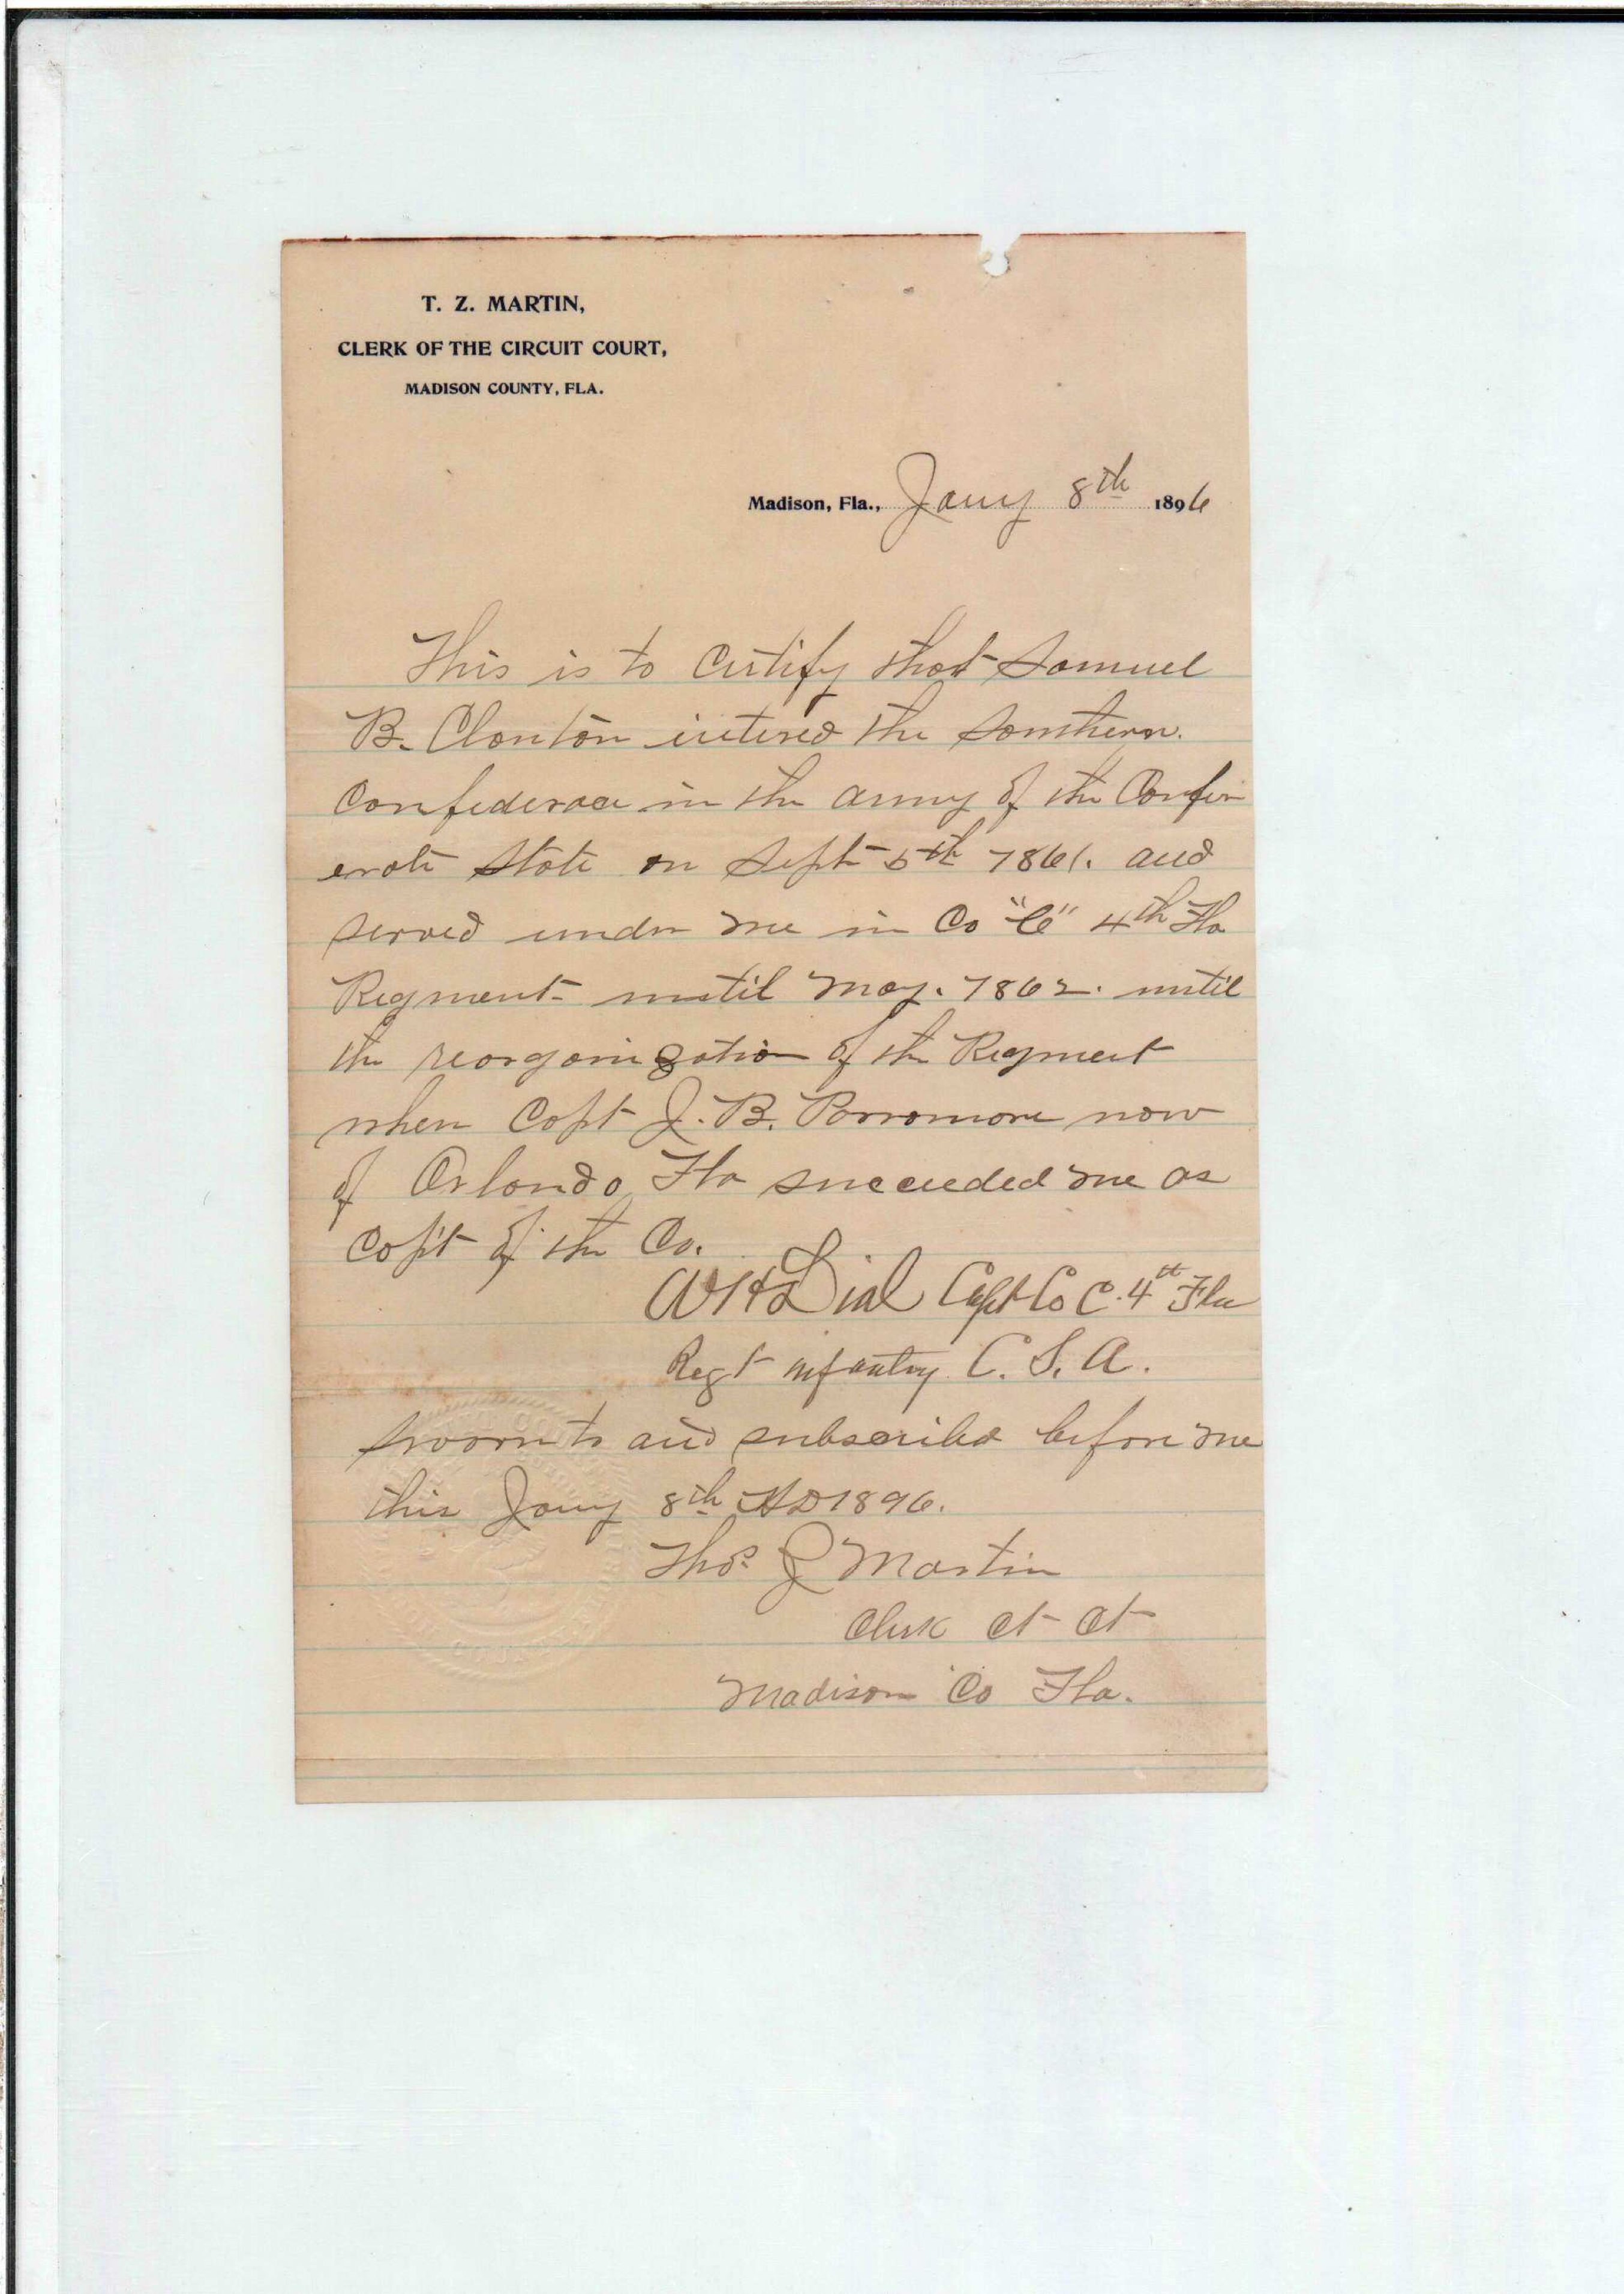 T. Z. MARTIN,
CLERK OF THE CIRCUIT COURT,
MADISON COUNTY, FLA.
Madison, Fla., Jany 8th 1896
This is to Certify that Samuel
B. Clanton intered the Southern
Confederace in the army of the Confed
erate State on Sept 5th 1861. and
served under me in Co "C" 4th Fla
Regment until May. 1862. until
the reorganization of the Regment
when Capt J. B. Parramore now
of Orlando Fla succeeded me as
Capt of the Co.
W H Dial Capt Co C. 4th Fla
Regt infantry C. S. A.
Sworn to and subscribed before me
this Jany 8th AD 1896.
Thos Z Martin
Clerk Ct Ct
Madison Co Fla.